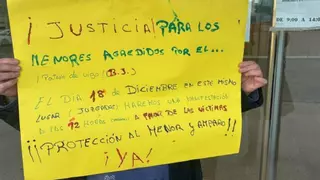 ¡ JUSTICIA PARA LOS
MENORES AGREDIDOS POR EL...
(B.J.)
EL DIA 18 DE DICIEMBRE EN ESTE MISMO
LUGAR ¡ JUZGADOS! HAREMOS UNA MANIFESTACION
A LAS 12 HORAS A DE LAS VÍCTIMAS
¡¡PROTECCIÓN AL MENOR Y AMPARO!!
¡YA!
DE 9:00 A 14:0